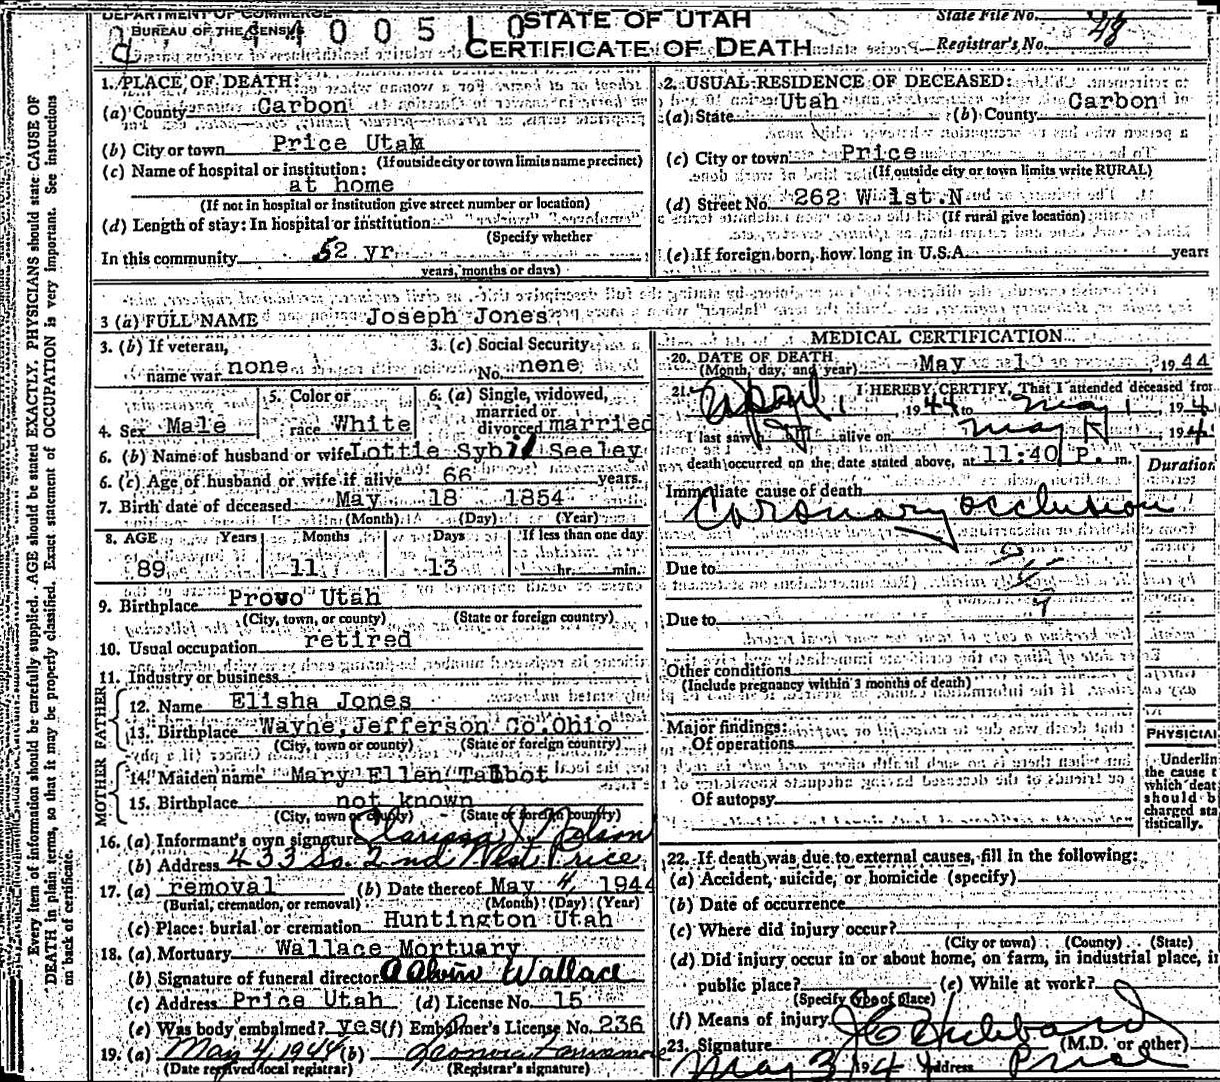 DEPARTMENT OF COMMERCE
BUREAU OF THE CENSUS
STATE OF UTAH
CERTIFICATE OF DEATH
State File No.
Registrar's No. 48
1. PLACE OF DEATH:
(a) County Carbon
(b) City or town Price Utah
(If outside city or town limits name precinct)
(c) Name of hospital or institution:
at home
(If not in hospital or institution give street number or location)
(d) Length of stay: In hospital or institution
(Specify whether
In this community 52 yr
years, months or days)
2. USUAL RESIDENCE OF DECEASED:
(a) State Utah (b) County Carbon
(c) City or town Price
(If outside city or town limits write RURAL)
(d) Street No. 262 W 1st.N
(If rural give location)
(e) If foreign born, how long in U.S.A. years
3 (a) FULL NAME Joseph Jones
3. (b) If veteran,
name war none
3. (c) Social Security
No. nene
4. Sex Male
5. Color or
race White
6. (a) Single, widowed,
married or
divorced married
6. (b) Name of husband or wife Lottie Sybil Seeley
6. (c) Age of husband or wife if alive 66 years.
7. Birth date of deceased May 18 1854
(Month) (Day) (Year)
8. AGE Years Months Days If less than one day
89 11 13 hr. min.
9. Birthplace Provo Utah
(City, town, or county) (State or foreign country)
10. Usual occupation retired
11. Industry or business
FATHER
12. Name Elisha Jones
13. Birthplace Wayne, Jefferson Co. Ohio
(City, town or county) (State or foreign country)
MOTHER
14. Maiden name Mary Ellen Talbot
15. Birthplace not known
(City, town or county) (State or foreign country)
16. (a) Informant's own signature Clarissa J Nelson
(b) Address 433 So. 2nd West Price
17. (a) removal (b) Date thereof May 4, 1944
(Burial, cremation, or removal) (Month) (Day) (Year)
(c) Place: burial or cremation Huntington Utah
18. (a) Mortuary Wallace Mortuary
(b) Signature of funeral director Wallace
(c) Address Price Utah (d) License No. 15
(e) Was body embalmed? yes (f) Embalmer's License No. 236
19. (a) May 4, 1944 (b)
(Date received local registrar) (Registrar's signature)
MEDICAL CERTIFICATION
20. DATE OF DEATH May 1, 1944
(Month, day, and year)
21. I HEREBY CERTIFY, That I attended deceased from
April 1, 1944 to May 1, 194
I last saw alive on May 1, 194
death occurred on the date stated above, at 11:40 P. m.
Duration
Immediate cause of death
Coronary occlusion
Due to
Due to
Other conditions
(Include pregnancy within 3 months of death)
Major findings:
Of operations
Of autopsy
PHYSICIAN
Underline
the cause t
which deat
should b
charged sta
tistically.
22. If death was due to external causes, fill in the following:
(a) Accident, suicide, or homicide (specify)
(b) Date of occurrence
(c) Where did injury occur?
(City or town) (County) (State)
(d) Did injury occur in or about home, on farm, in industrial place, in
public place? (e) While at work?
(Specify type of place)
(f) Means of injury
23. Signature J C Hubbard (M.D. or other)
May 3 1944 Address Price
Every item of information should be carefully supplied. AGE should be stated EXACTLY. PHYSICIANS should state CAUSE OF
DEATH in plain terms, so that it may be properly classified. Exact statement of OCCUPATION is very important. See instructions
on back of certificate.